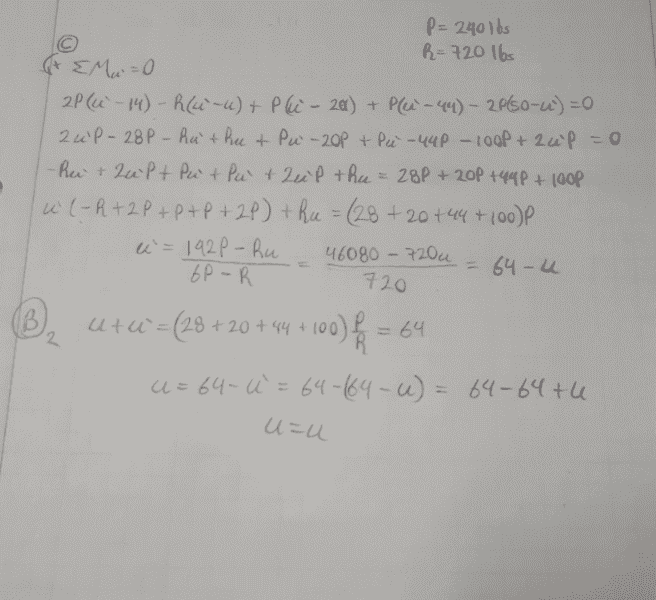 P = 240 lbs
R = 720 lbs
Ⓒ
↶+ ΣMu` = 0
2P(u` - 14) - R(u` - u) + P(u` - 20) + P(u` - 44) - 2P(50 - u`) = 0
2u`P - 28P - Ru` + Ru + Pu` - 20P + Pu` - 44P - 100P + 2u`P = 0
-Ru` + 2u`P + Pu` + Pu` + 2u`P + Ru = 28P + 20P + 44P + 100P
u`(-R + 2P + P + P + 2P) + Ru = (28 + 20 + 44 + 100)P
u` = (192P - Ru)/(6P - R) = (46080 - 720u)/720 = 64 - u
Ⓑ₂ u + u` = (28 + 20 + 44 + 100) P/R = 64
u = 64 - u` = 64 - (64 - u) = 64 - 64 + u
u = u